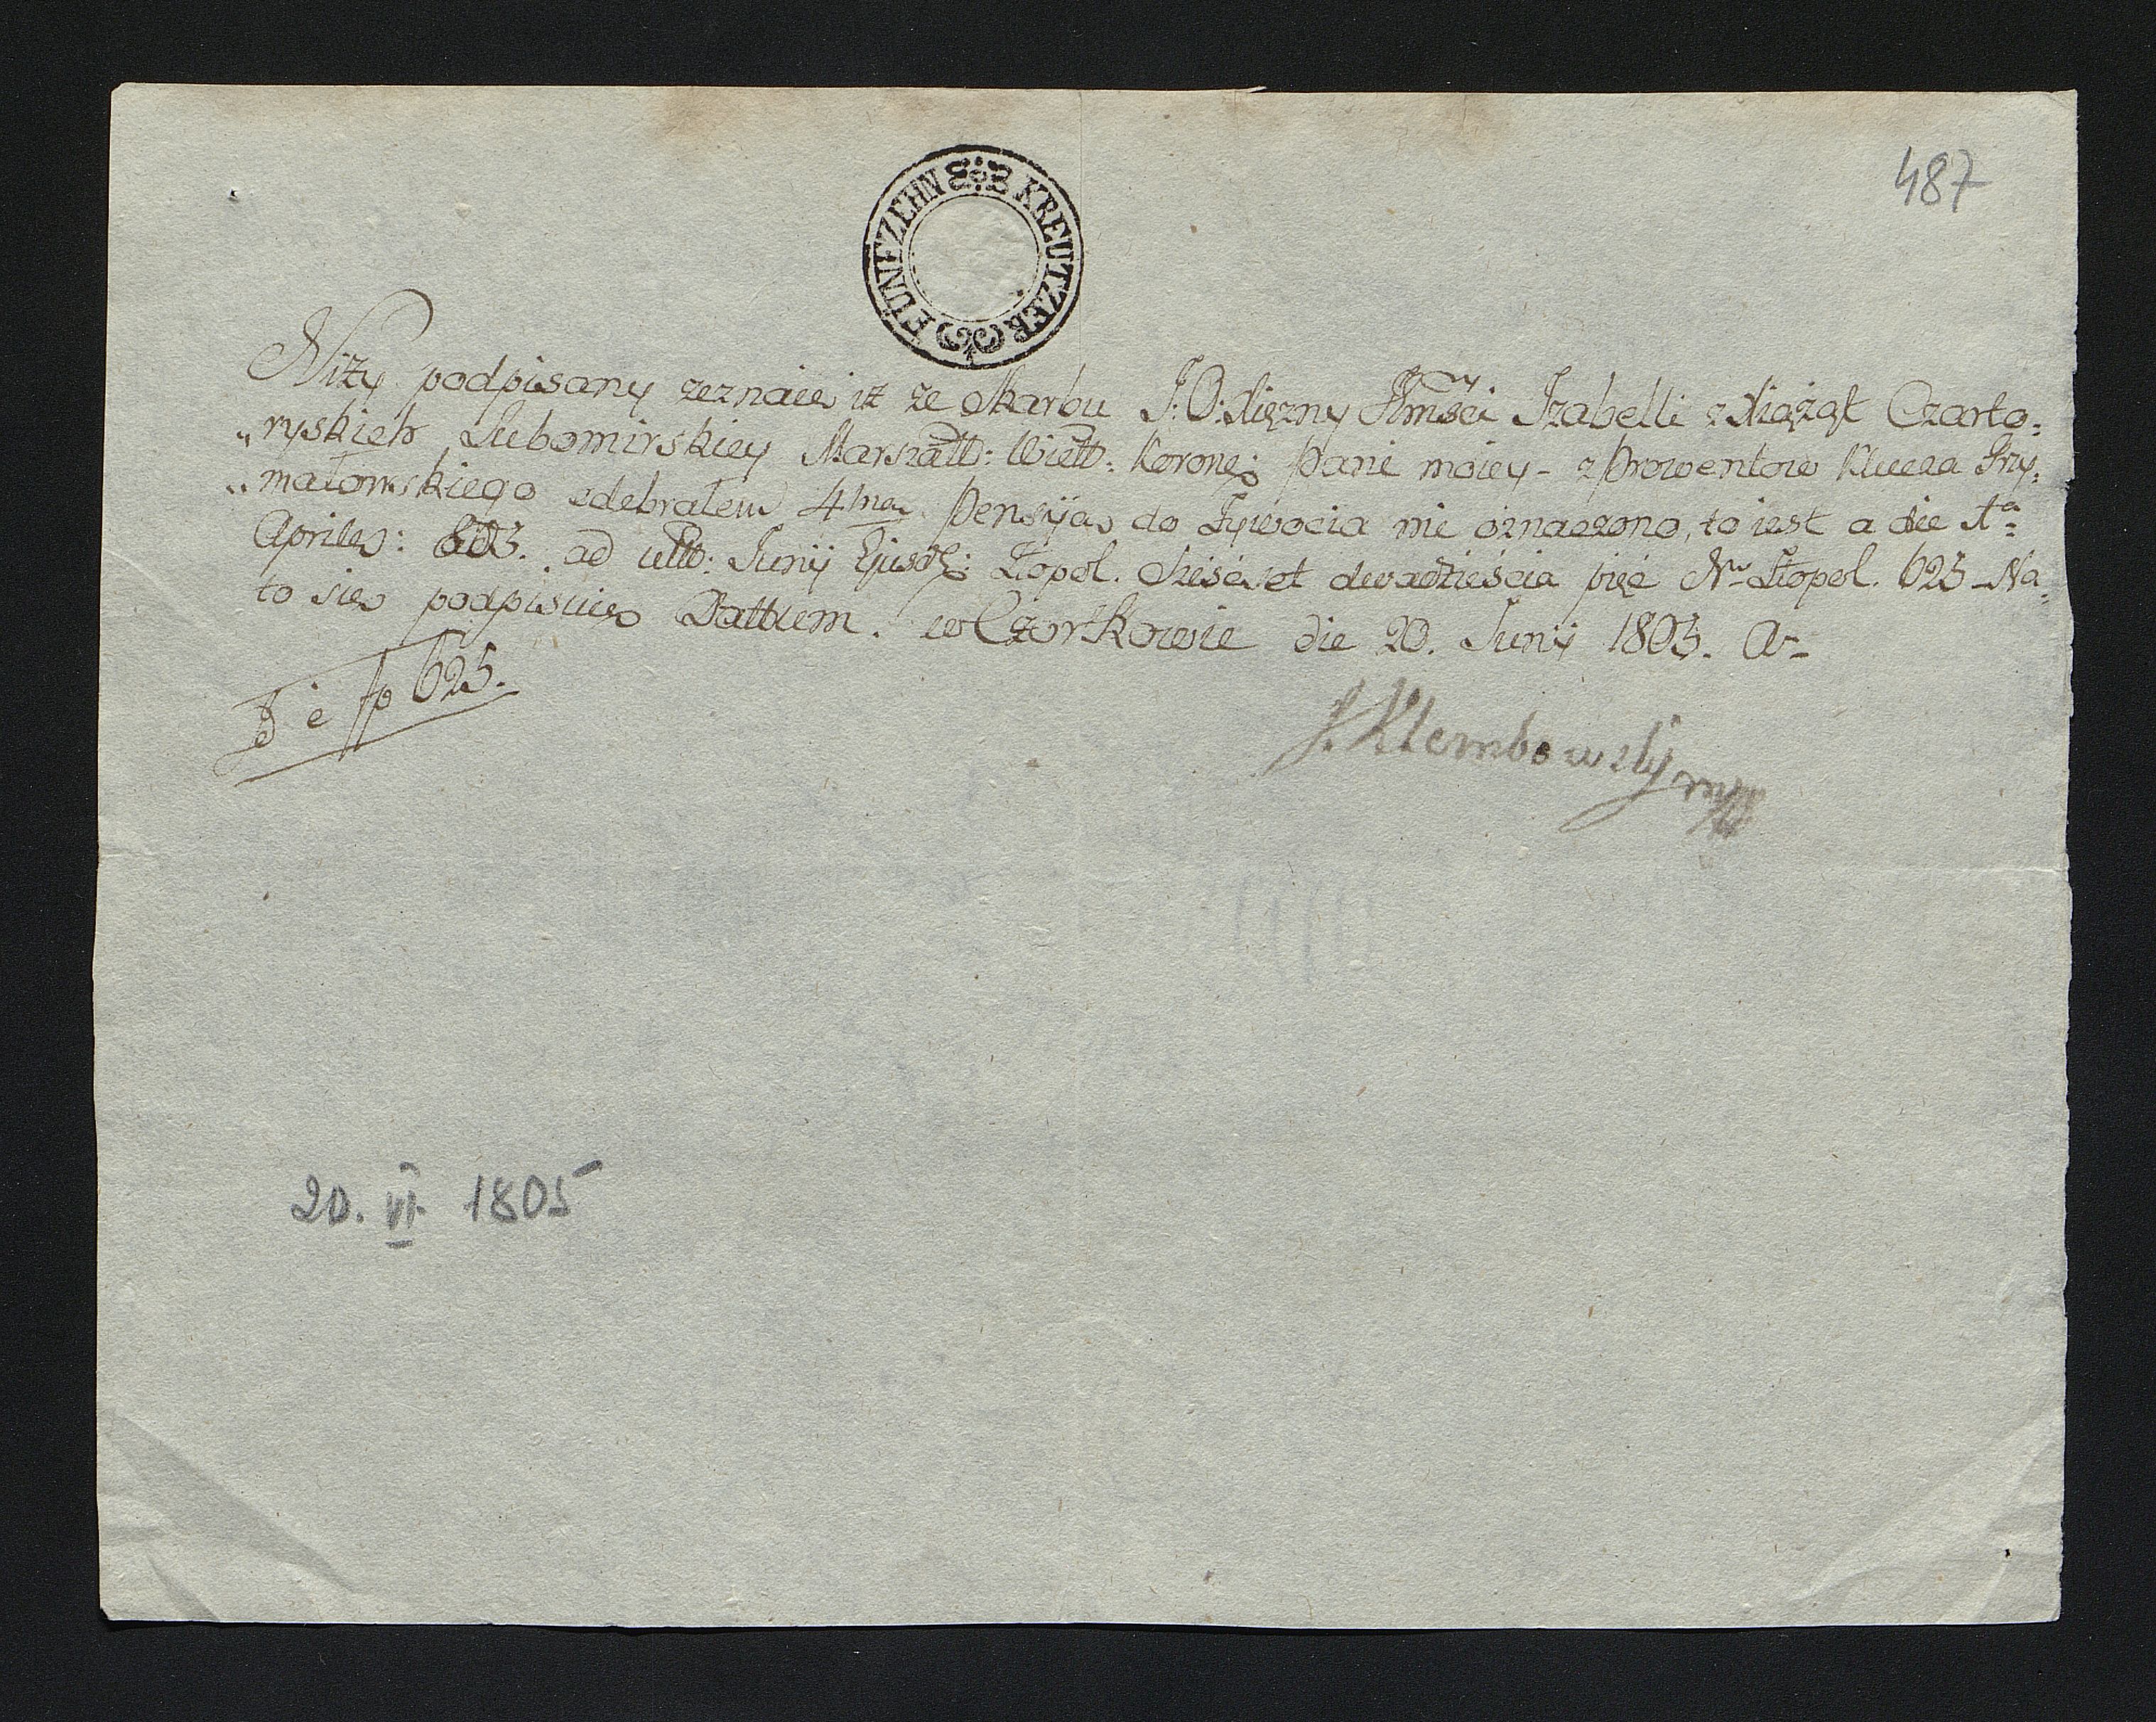 487
FÜNFZEHN KREUTZER
Niży podpisany zeznaię iż ze Skarbu J: O: Xiężny Jmści Izabelli z Xiążąt Czarto:
„ryskich Lubomirskiey Marszałł: Wiell: Koronę: Pani moiey - z Prowentow Klucza Grzy:
„małowskiego odebrałem 4tną Pensyją do Żywocia mi oznaczoną, to iest a die 1a
Aprilis: 805. ad ult: Junij Ejusd: Złopol. Sześćset dwadzieścia pięć Nro Złopol. 625 - Na
to się podpisuię Dattum. w Czortkowie die 20. Junij 1805. A-
J. Klembowsky mp
id e fp 625.
20. VI 1805